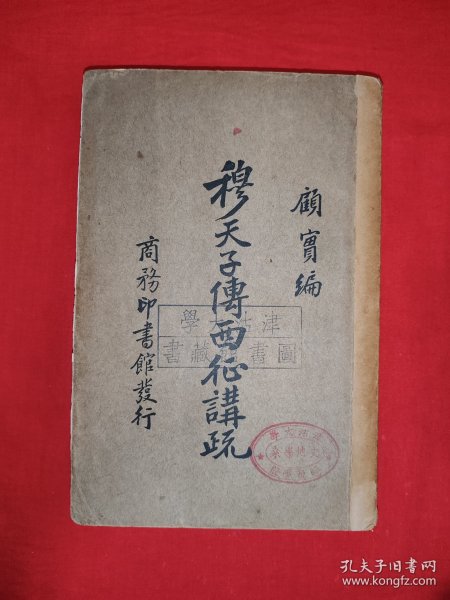 顧實編
穆天子傳西征講疏
商務印書館發行
津 學
圖書 藏書
孔夫子旧书网
www.kongfz.com